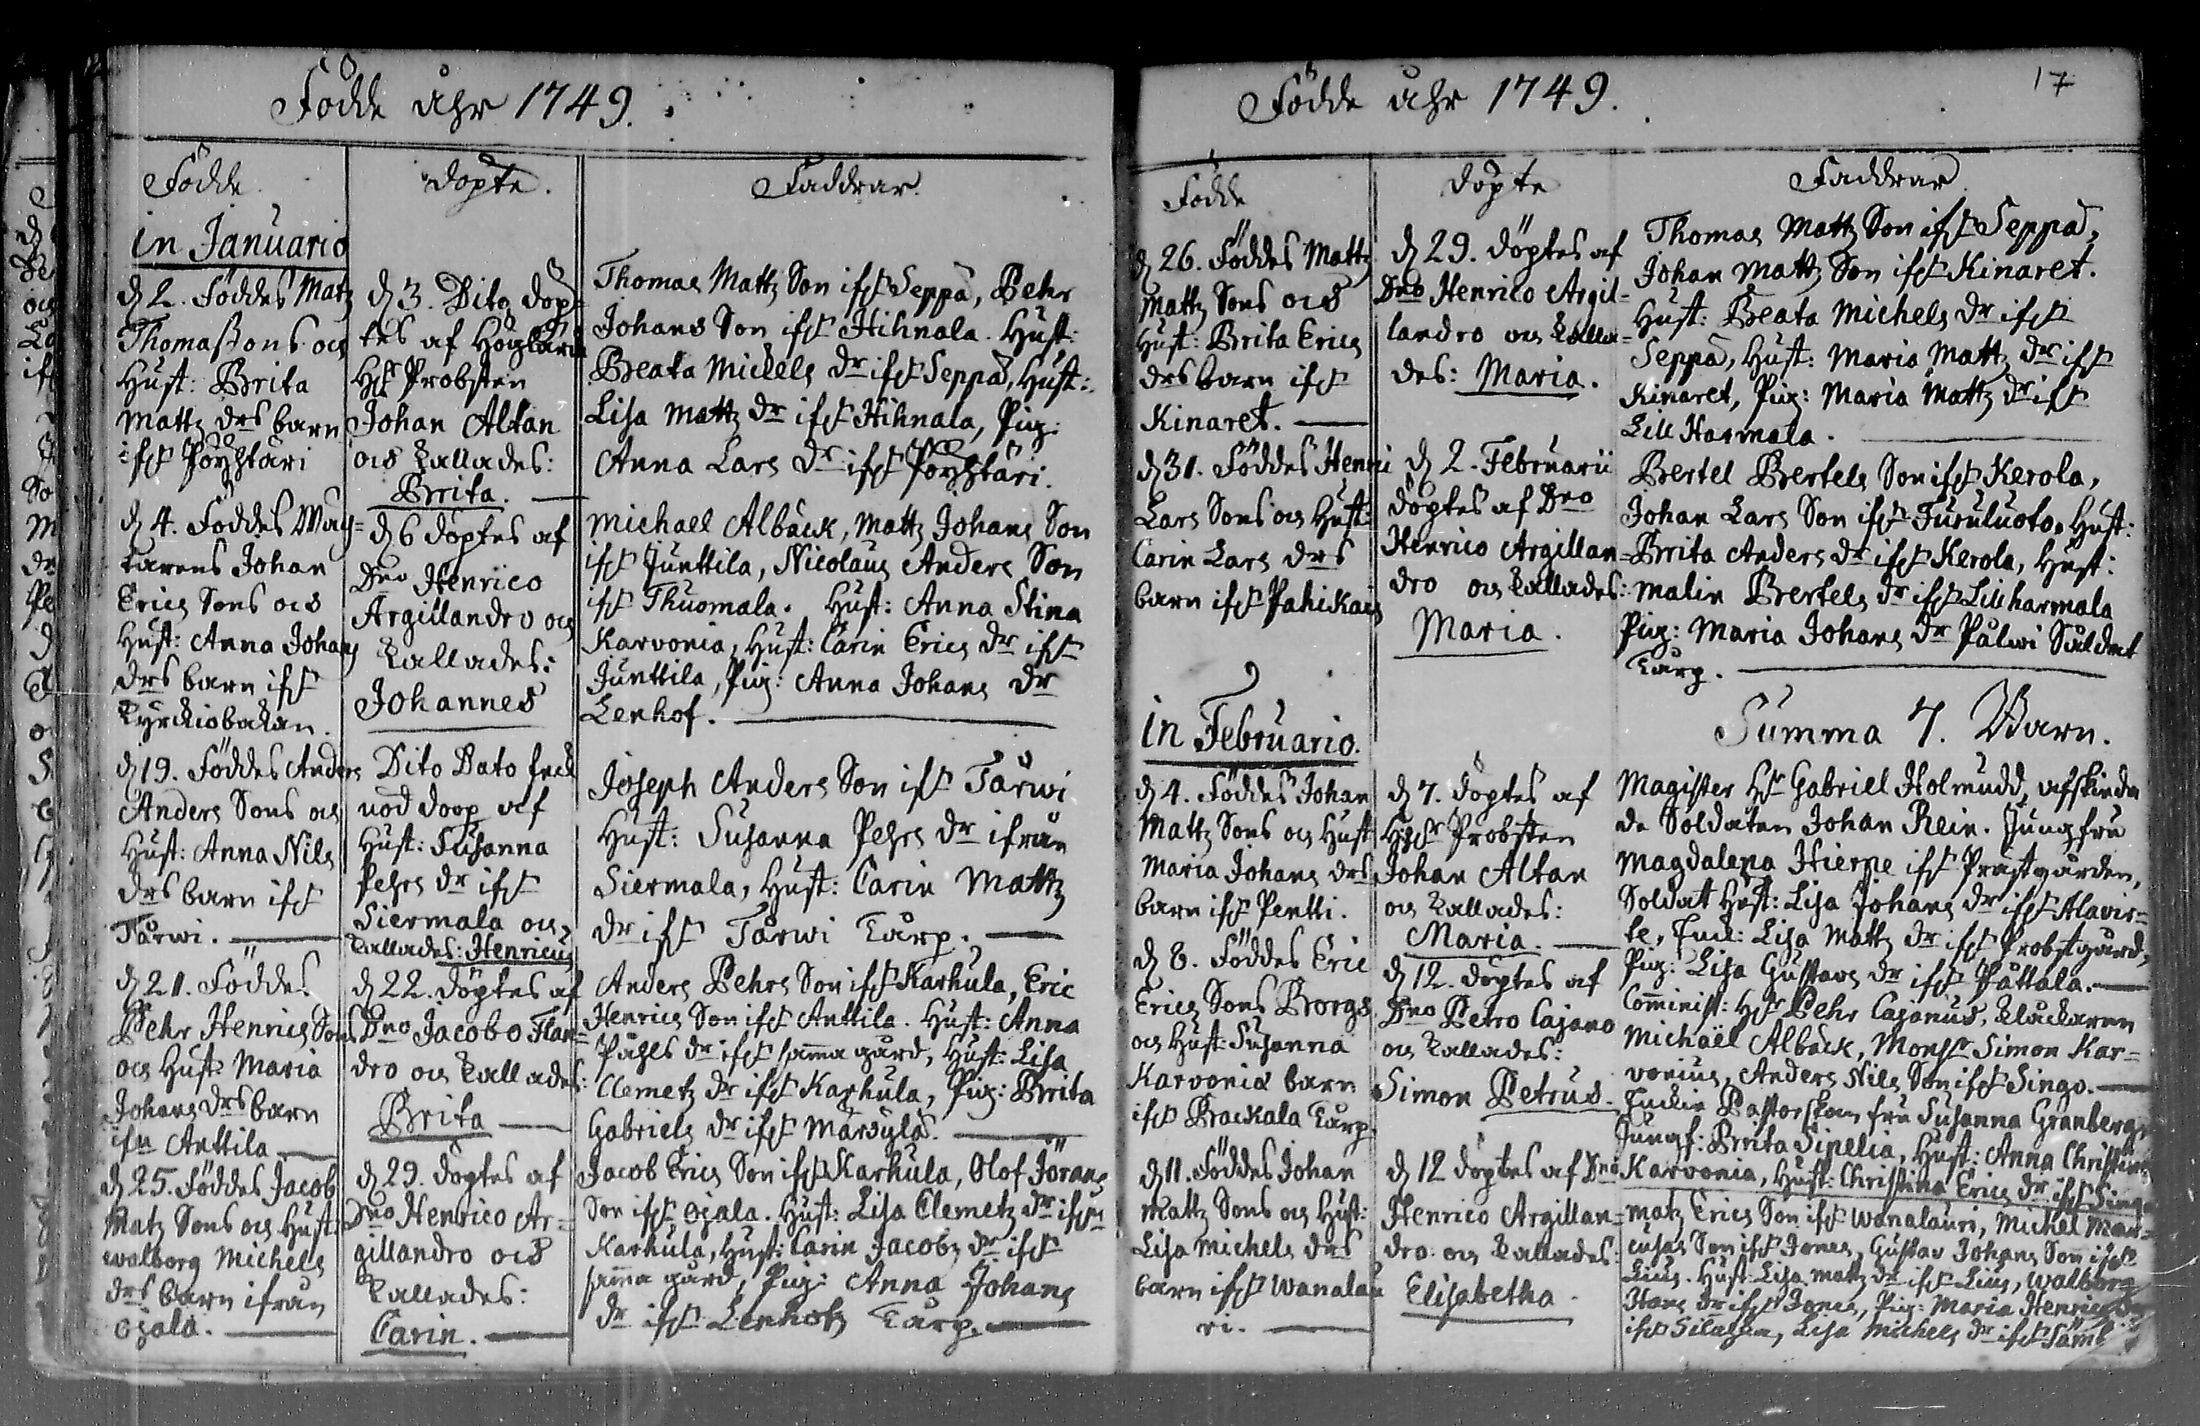 Födde åhr 1749.
Födde
Döpte.
Faddrar.
in Januario
d. 2. Föddes Matz
Thomæsons och
Hust: Brita
Mattz drs barn
ifrå Pöyhtäri
d. 3. Dito döp-
tes af Höglärde
H:r Probsten
Johan Altan
och kallades:
Brita.
Thomas Mattz Son ifrå Seppä, Pehr
Johans Son ifrå Hihnala. Hust:
Beata Michels dr ifrå Seppä, Hust:
Lisa Mattz dr ifrå Hihnala, Pig:
Anna Lars dr ifrå Pöyhtäri.
d. 4. Föddes Wäg-
tarens Johan
Erics Sons och
Hust: Anna Johans
drs barn ifrå
Kyrckiobackan.
d. 6 döptes af
Dno Henrico
Argillandro och
kallades:
Johannes
Michael Albäck, Mattz Johans Son
ifrå Junttila, Nicolaus Anders Son
ifrå Thuomala. Hust: Anna Stina
Karvonia, Hust: Carin Erics dr ifrå
Junttila, Pig: Anna Johans dr
Lenhof.
d. 19. Föddes Anders
Anders Sons och
Hust: Anna Nils
drs barn ifrå
Tårwi.
Dito Dato feck
nöd doop af
Hust: Susanna
Pehrs dr ifrå
Siermala och
kallades: Henricus
Joseph Anders Son ifrå Tårwi
Hust: Susanna Pehrs dr ifrån
Siermala, Hust: Carin Mattz
dr ifrå Tårwi Karp.
d. 21. Föddes
Pehr Henrics Sons
och Hust: Maria
Johans drs barn
ifrn Anttila
d. 22. döptes af
Dno Jacobo Flan-
dro och kallades:
Brita
Anders Pehrs Son ifrå Karhula, Eric
Henrics Son ifrå Anttila. Hust: Anna
Påhls dr ifrå samma gård, Hust: Lisa
Clemetz dr ifrå Karhula, Pig: Brita
Gabriels dr ifrå Märsylä.
d. 25. Föddes Jacob
Matz Sons och Hust:
Walborg Michels
drs barn ifrån
Ojala.
d. 29. döptes af
Dno Henrico Ar-
gillandro och
kallades:
Carin.
Jacob Erics Son ifrå Karhula, Olof Jörans
Son ifrå Ojala. Hust: Lisa Clemetz dr ifrån
Karhula, Hust: Carin Jacobs dr ifrå
samma gård, Pig: Anna Johans
dr ifrå Lenholtz Karp.
17
Födde åhr 1749.
Födde
Döpte
Faddrar
d. 26. Föddes Mattz
Mattz Sons och
Hust: Brita Erics
drs barn ifrå
Kinaret.
d. 29. döptes af
Dno Henrico Argil-
landro och kalla-
des: Maria.
Thomas Mattz Son ifrå Seppä,
Johan Mattz Son ifrå Kinaret.
Hust: Beata Michels dr ifrå
Seppä, Hust: Maria Mattz dr ifrå
Kinaret, Pig: Maria Mattz dr ifrå
Lill Harmala.
d. 31. Föddes Henri
Lars Sons och Hust:
Carin Lars drs
barn ifrå Pahikais
d. 2. Februarii
döptes af Dno
Henrico Argillan-
dro och kallades:
Maria.
Bertel Bertels Son ifrå Kerola,
Johan Lars Son ifrå Furuluoto. Hust:
Brita Anders dr ifrå Kerola, Hust:
Malin Bertels dr ifrå Lill harmala
Pig: Maria Johans dr Pålwi Såldat
Karp.
Summa 7. Barn.
in Februario.
d. 4. Föddes Johan
Mattz Sons och Hust:
Maria Johans drs
barn ifrå Pentti.
d. 7. döptes af
H:r Probsten
Johan Altan
och kallades:
Maria.
Magister H:r Gabriel Holmudd, afskieda
de Soldaten Johan Rein. Jungfru
Magdalena Hierpe ifrå Prästgården,
Soldat Hust: Lisa Johans dr ifrå Alavis-
te, Enck: Lisa Mattz dr ifrå Probstgård,
Pig: Lisa Gustavs dr ifrå Påttala.
d. 8. Föddes Eric
Erics Sons Borgs
och Hust: Susanna
Karvonia barn
ifrå Brackala Karp.
d. 12. döptes af
Dno Petro Cajano
och kallades:
Simon Petrus.
Comminist: H:r Pehr Cajanus, Klåckaren
Michaël Albäck, Mons:r Simon Kar-
vonius, Anders Nils Son ifrå Singo.
Enckie Pastorskan fru Susanna Granberg,
Jungf: Brita Sipelia, Hust: Anna Christina
Karvonia, Hust: Christina Erics dr ifrå Singo
d. 11. Föddes Johan
Mattz Sons och Hust:
Lisa Michels drs
barn ifrå Wanalau
ri.
d. 12 döptes af Dno
Henrico Argillan-
dro och kallades:
Elisabetha.
Matz Erics Son ifrå Wanalauri, Michel Mar-
cusas Son ifrå Jones, Gustav Johans Son ifrå
Lius. Hust: Lisa Mattz dr ifrå Lius, Walborg
Hans dr ifrå Jones, Pig: Maria Henrics dr
ifrå Silahen, Lisa Michels dr ifrå